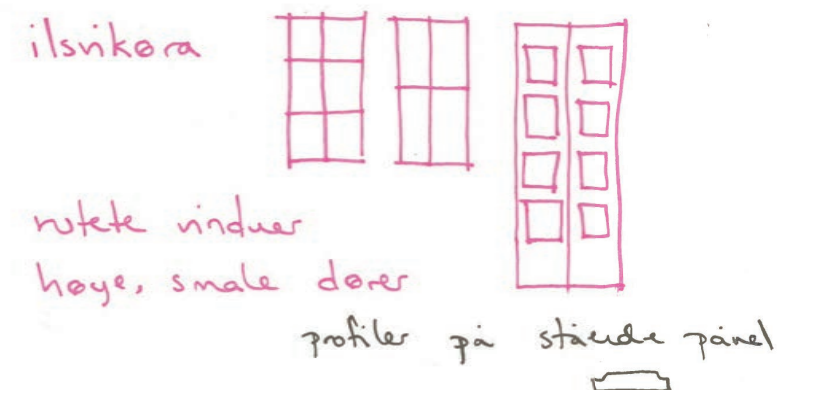 ilsvikøra
rutete vinduer
høye, smale dører
profiler på stående panel